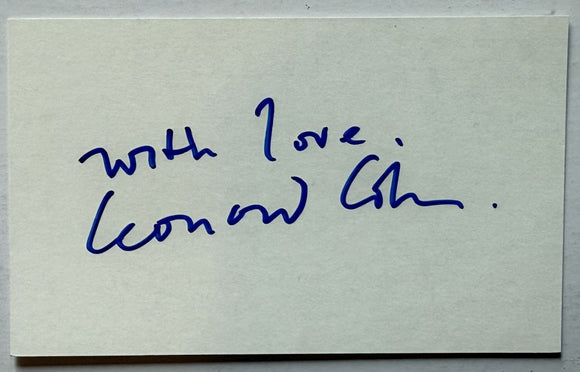 with love.
Leonard Cohen.